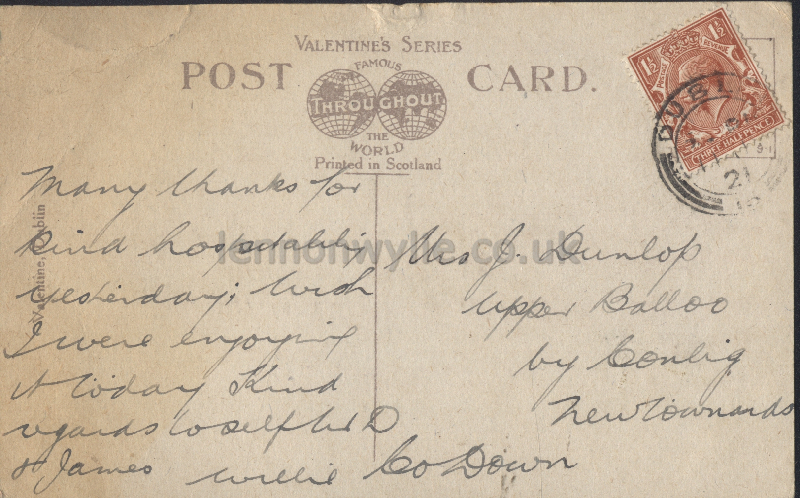 VALENTINE'S SERIES
POST CARD.
FAMOUS
THROUGHOUT
THE
WORLD
Printed in Scotland
1½ 1½
POSTAGE REVENUE
THREE HALFPENCE
DUBLIN
21
Valentine, Dublin
lennonwylie.co.uk
Many thanks for
kind hospitality
yesterday; Wish
I were enjoying
it today Kind
regards to self
& James Willie
Mrs J. Dunlop
Upper Balloo
by Conlig
Newtownards
Co Down